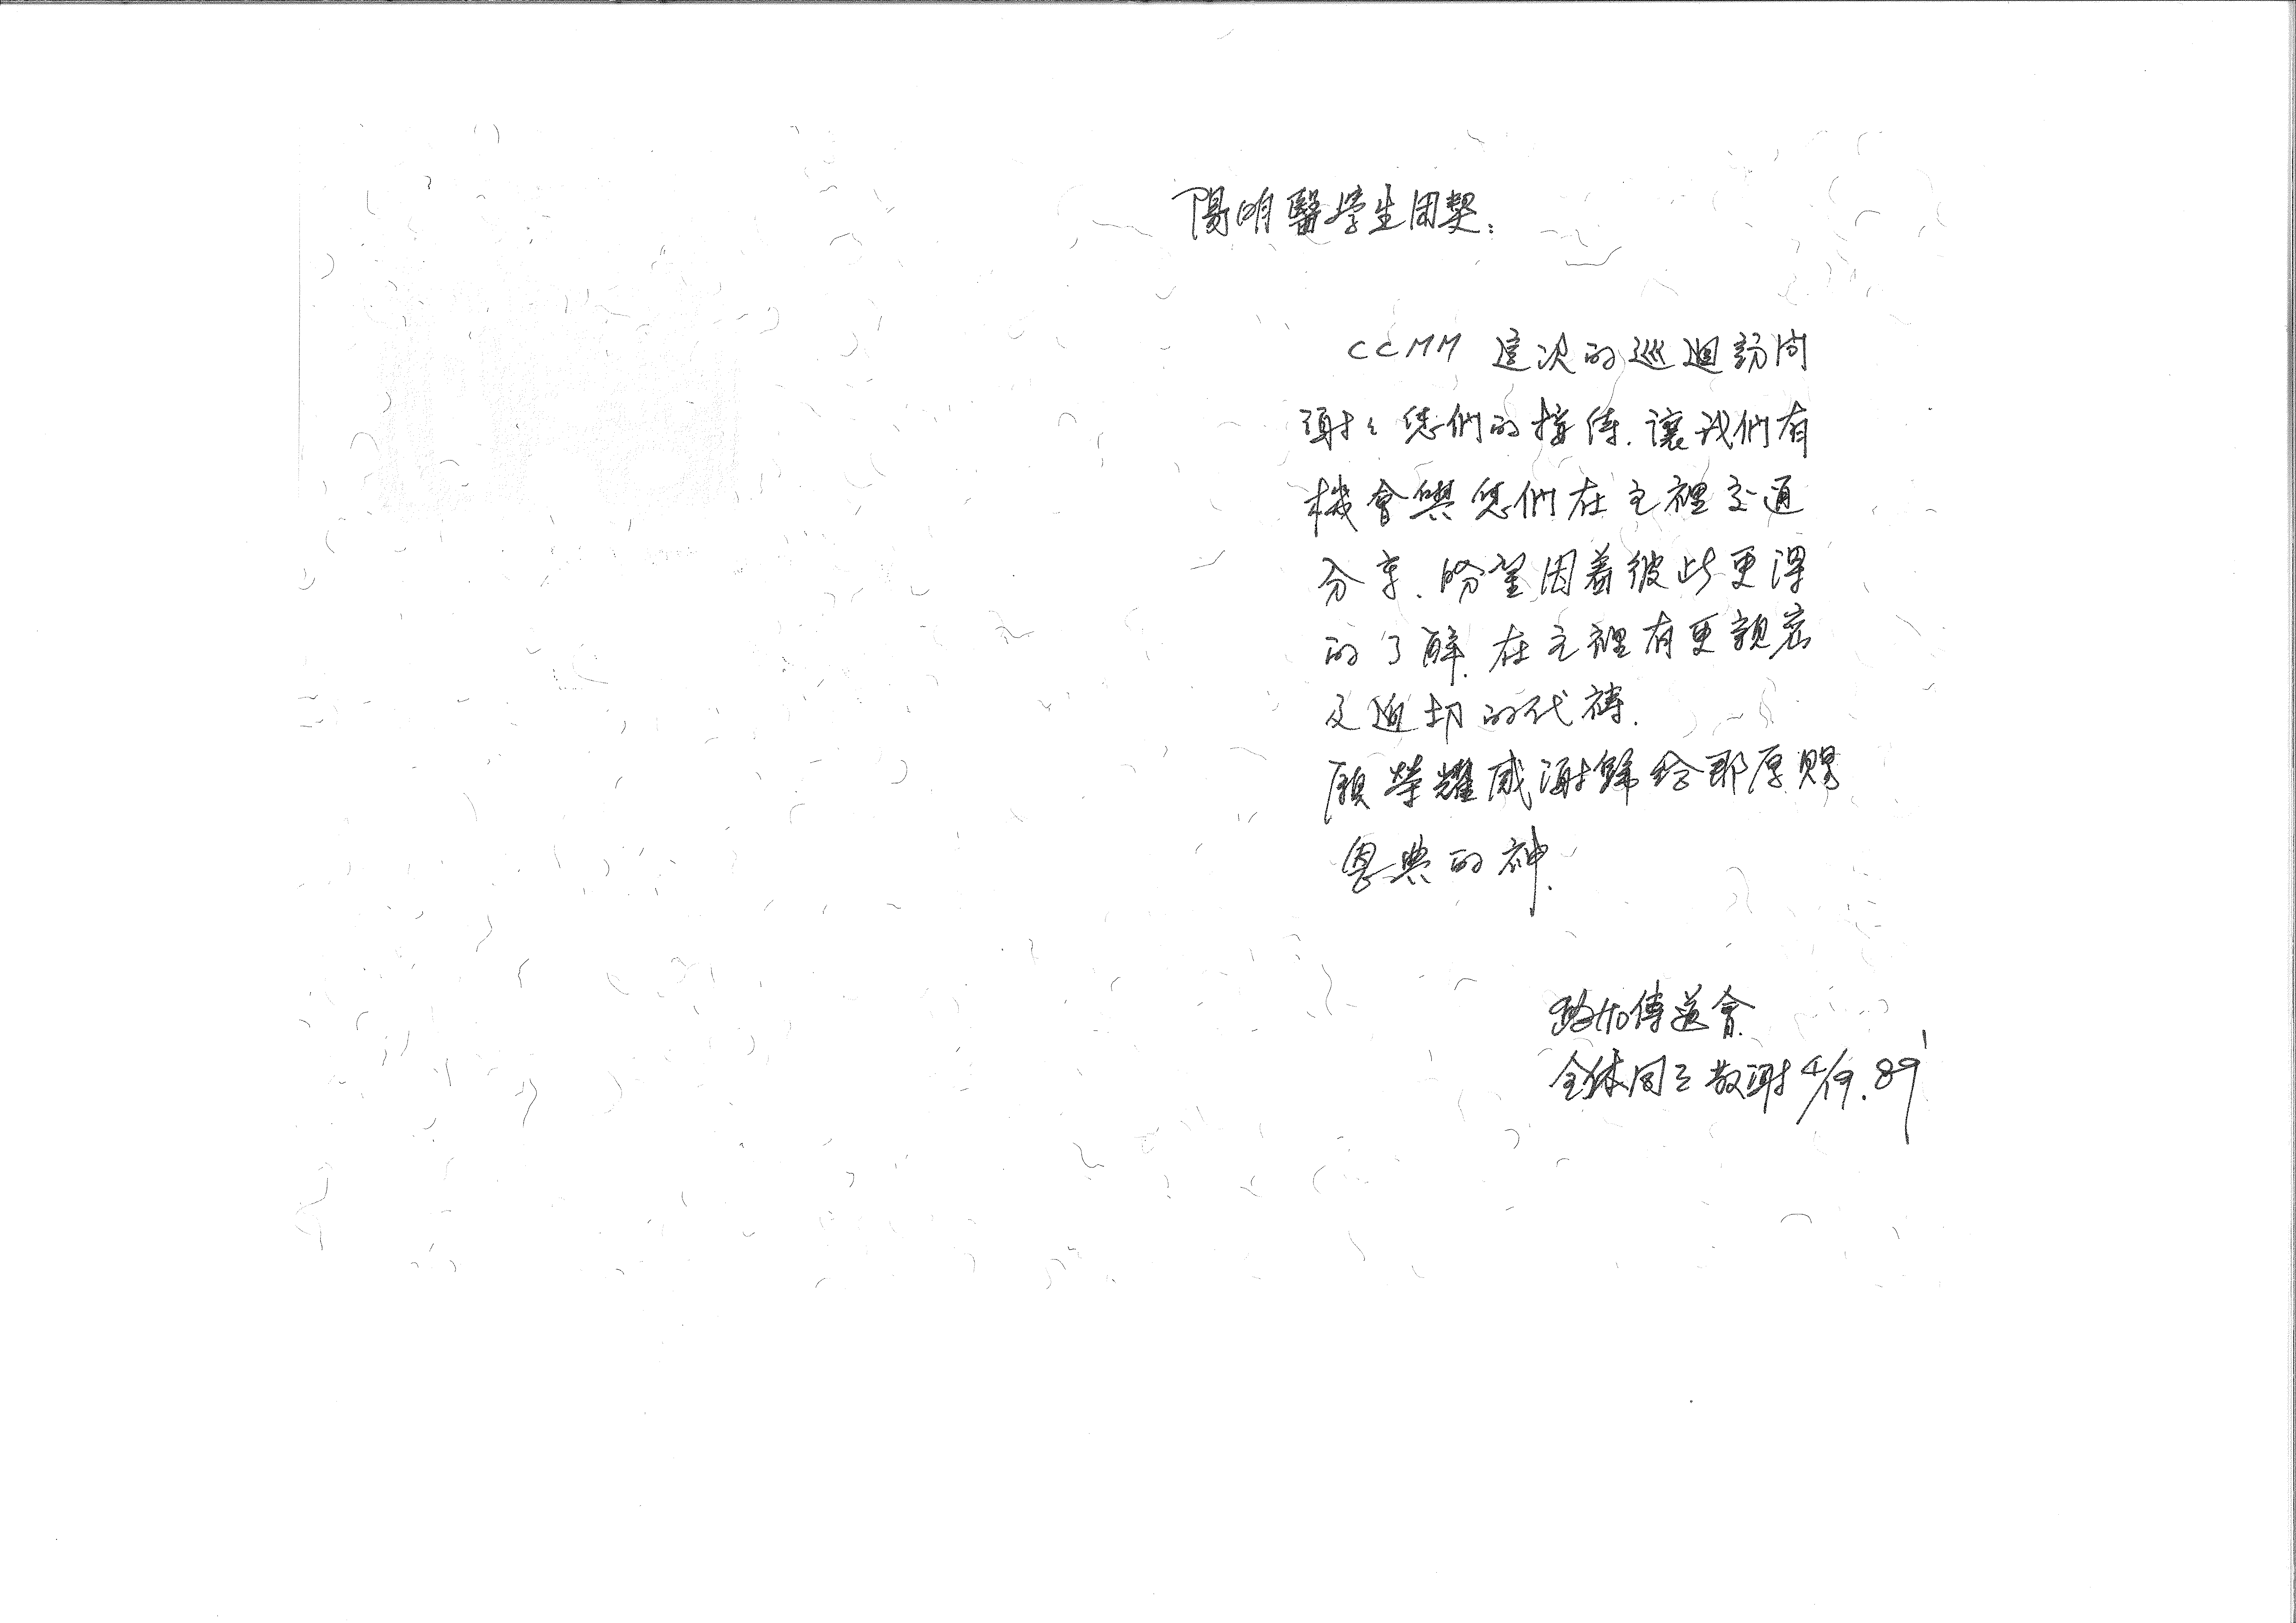 陽明醫學生团契:
CCMM 這次的巡迴訪问
謝々您們的接待.讓我們有
機會與您們在主裡交通
分享.盼望因着彼此更深
的了解.在主裡有更親密
及迫切的代禱.
願榮耀感謝歸给那厚賜
恩典的神.
路加傳道會
全体同工敬謝 4/19.89'